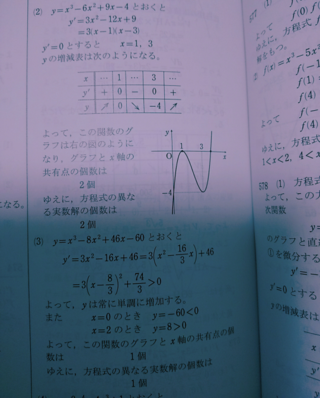 (2) y=x³-6x²+9x-4 とおくと
y'=3x²-12x+9
=3(x-1)(x-3)
y'=0 とすると x=1, 3
y の増減表は次のようになる。
x … 1 … 3 …
y' + 0 - 0 +
y ↗ 0 ↘ -4 ↗
よって，この関数のグ
ラフは右の図のように
なり，グラフと x軸の
共有点の個数は
2個
ゆえに，方程式の異な
る実数解の個数は
2個
y
1 3
O x
-4
(3) y=x³-8x²+46x-60 とおくと
y'=3x²-16x+46=3(x²-16/3 x)+46
=3(x-8/3)²+74/3>0
よって，y は常に単調に増加する。
また x=0 のとき y=-60<0
x=2 のとき y=8>0
よって，この関数のグラフと x軸の共有点の個
数は 1個
ゆえに，方程式の異なる実数解の個数は
1個
になる。
f(0)
よって
ゆえに，方程式
解をもつ。
f(-1
f(1)
f(4)
よって
f(-
f(4)
ゆえに，方程式
1<x<2, 4<x
578 (1) 方程式
よって，この方
次関数
y=
のグラフと直
①を微分する
y'=-
y'=0とすると
yの増減表は
x